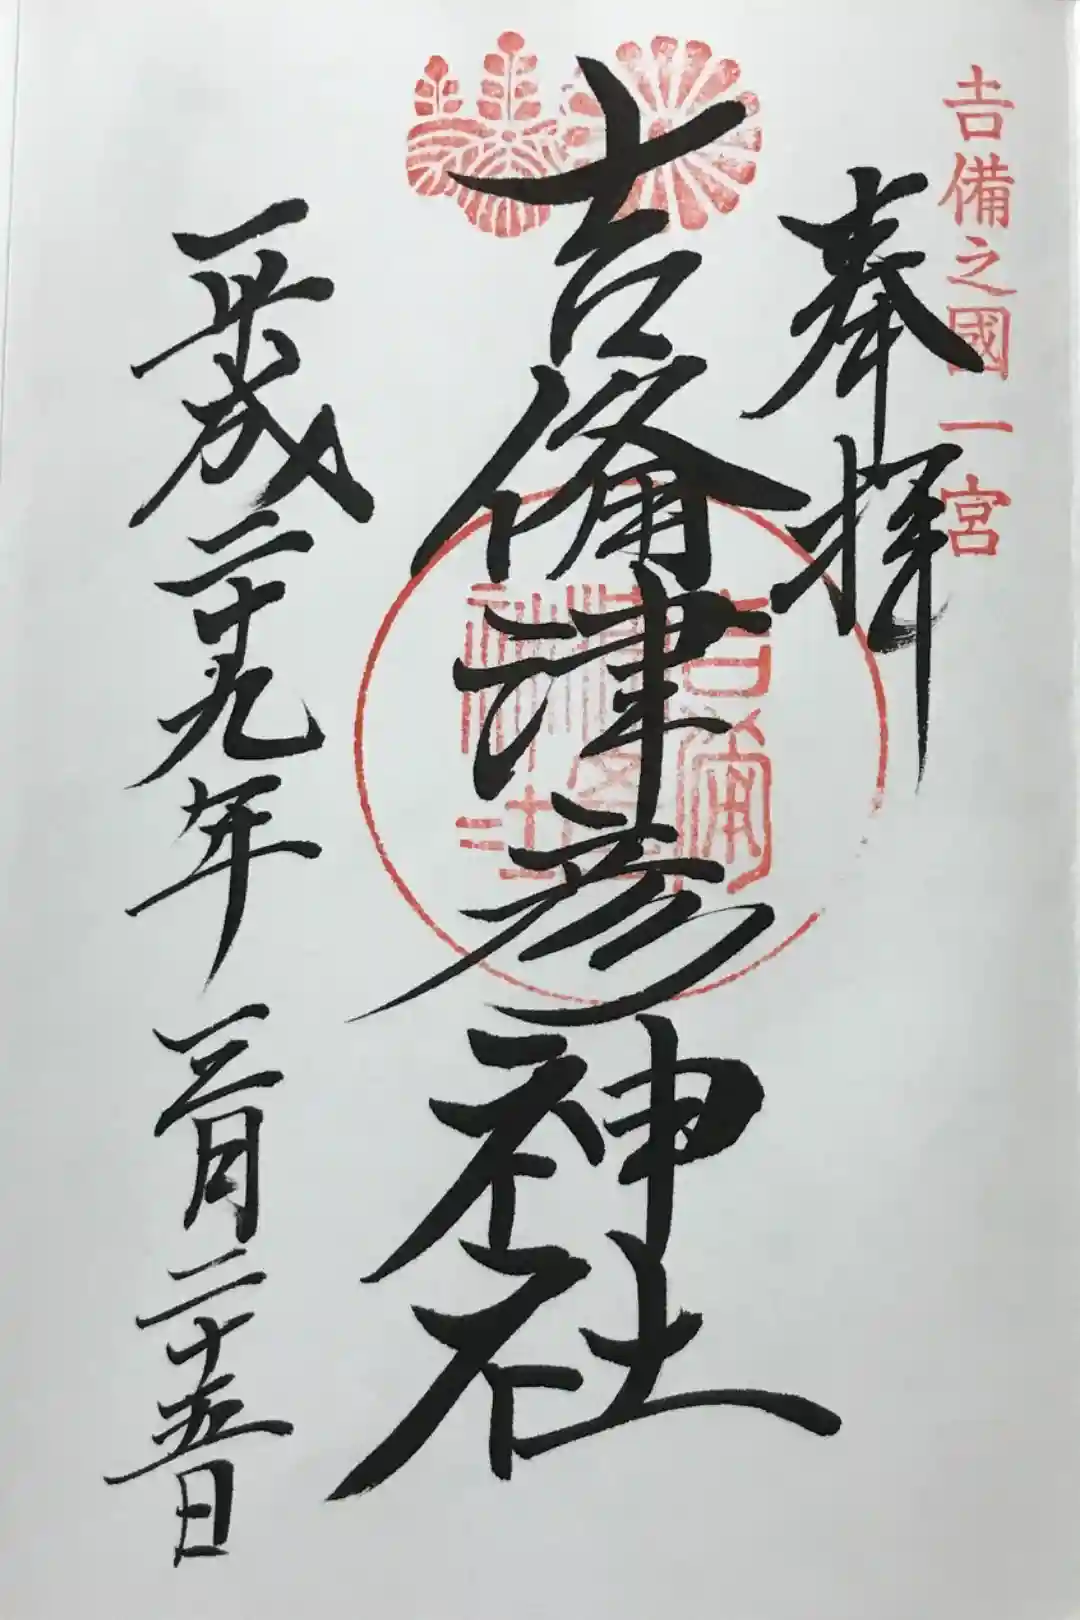 𠮷備之國一宮
奉拝
吉備津彦神社
吉備
津彦
神社
平成二十九年三月二十五日